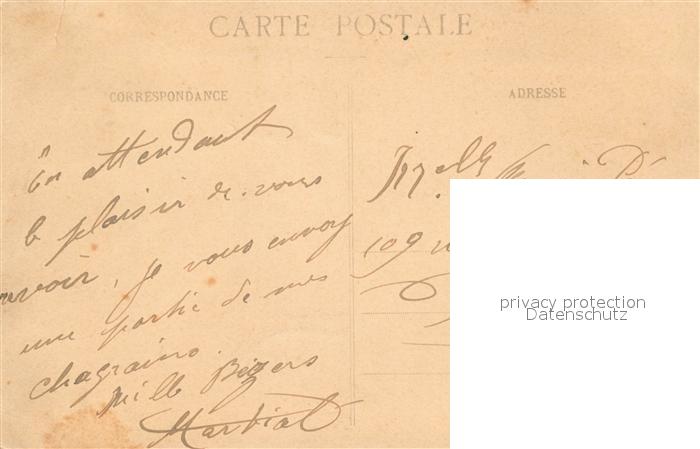 CARTE POSTALE
CORRESPONDANCE
ADRESSE
En attendant
le plaisir de vous
revoir, je vous envoy
une partie de mes
chagrains.
Mille Bigers
Martial
Mlle
109
privacy protection
Datenschutz